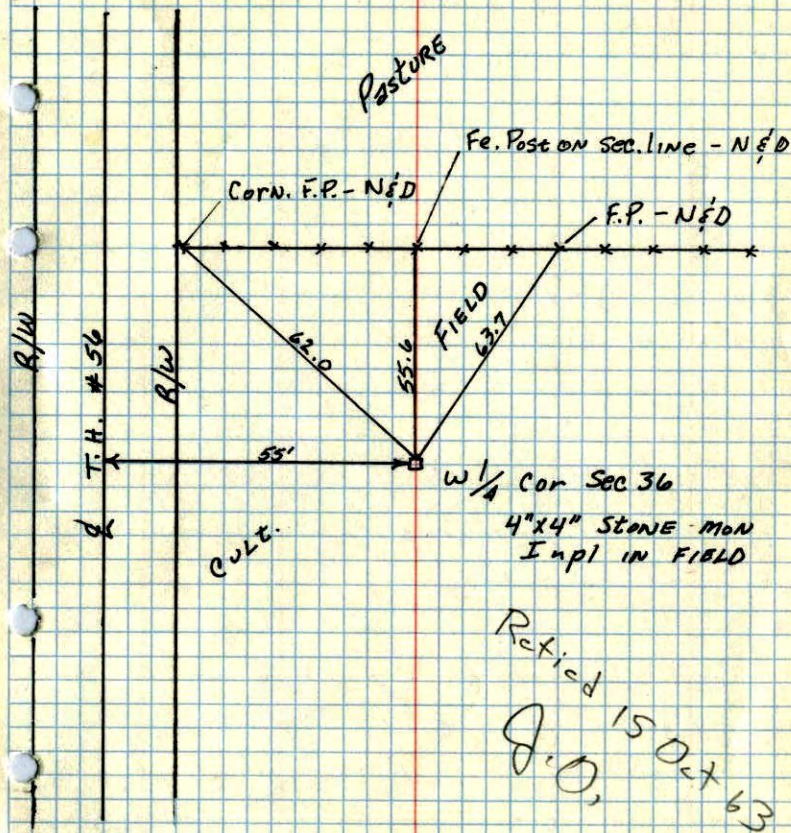 Pasture
Fe. Post on Sec. line - N & D
Corn. F.P. - N & D
F.P. - N & D
R/W
T.H. #56
R/W
62.0
55.6
FIELD
63.7
55'
W 1/4 Cor Sec 36
4"x4" STONE MON
Inpl IN FIELD
℄
CULT.
Retied 15 Oct 63
J.O.